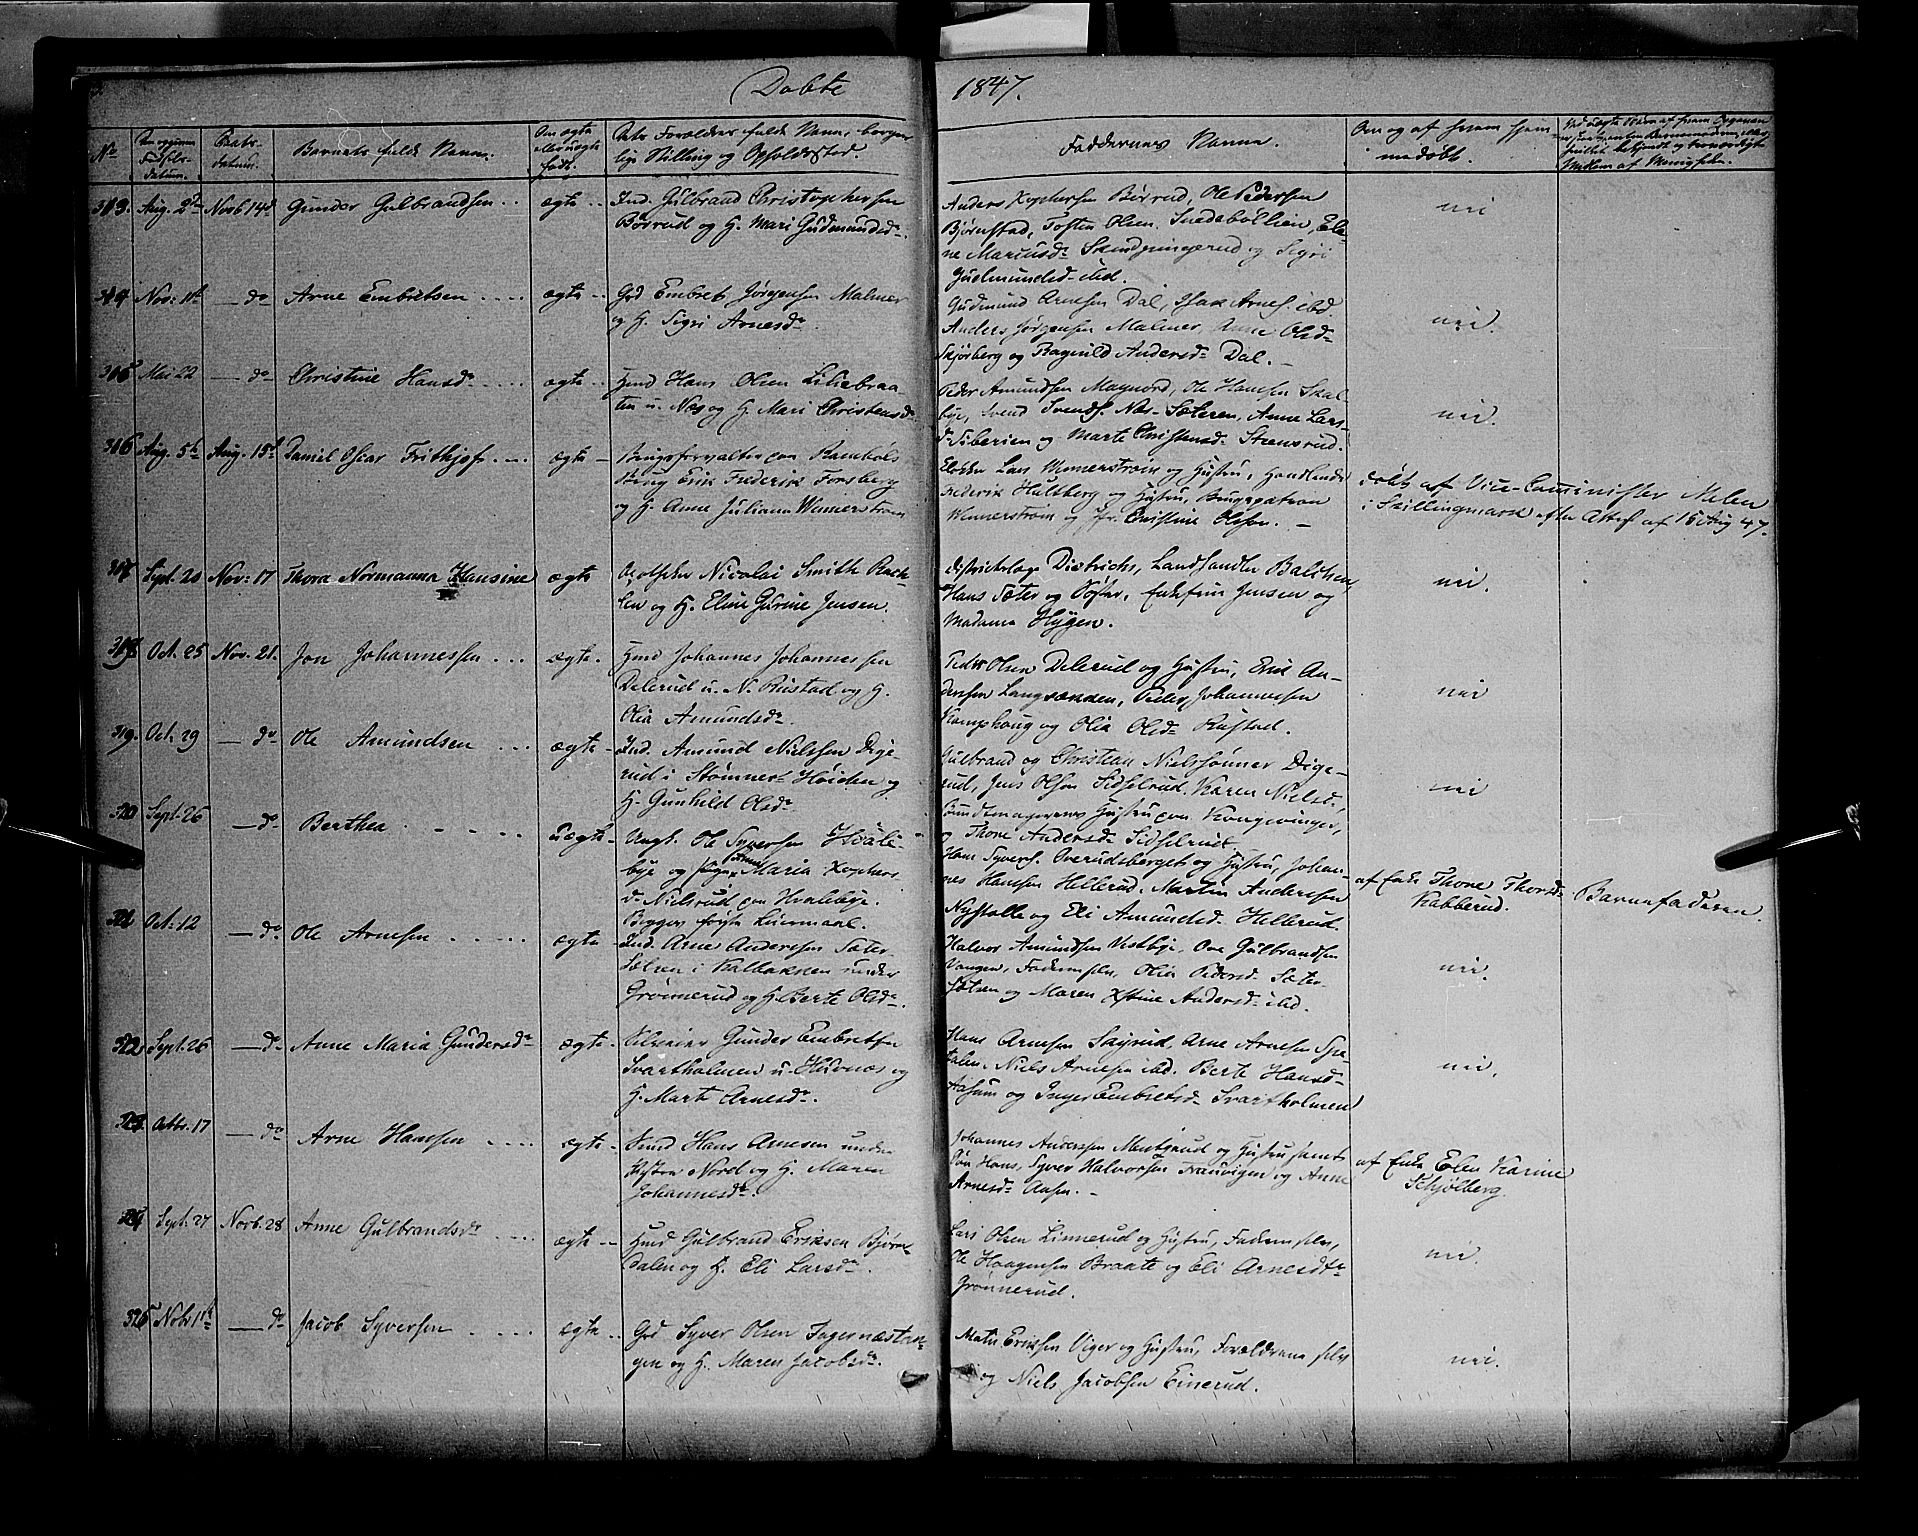 Döbte 1847.
No
Daabs-
datum.
Barnets fulde Navn.
Om ægte
eller uægte
født.
Dets Forældres fulde Navne, borger-
lige Stilling og Opholdssted.
Faddernes Navne.
Om og af hvem hjem-
medöbt.
313. Aug. 2d Novb 14d Gunder Gulbrandsen ægte Ind. Gulbrand Christophersen
Börrud og H. Mari Gudmundsd.
Anders Xophersen Börrud, Ole Pedersen
Björnstad, Tosten Olsen
ne Mariusd. og Sigri
Gudmundsd ibd.
nei
314 Nov: 1t do Arne Embretsen ægte Grd Embret Jörgensen Malmer
og H. Sigri Arnesd.
Gudmund Arnesen Dal, Isak Arnes. ibd.
Anders Jörgensen Malmer, Anne Olsd
Skjörberg og Ragnild Andersd Dal.
nei.
315 Mai 22 do Christine Hansd ægte Hmd Hans Olsen Liliebraa-
ten u. Næs og H. Mari Christensd
Peder Amundsen Magnord, Ole Hansen Skal-
bye, Svend Svends. Næs-Sæteren, Anne Lars-
d. Siberien og Marte Christensd Steensrud.
nei.
316 Aug. 5t Aug. 15d Daniel Oscar Frithjof ægte Brugsforvalter paa Ramböls
Brug Erik Frederik Forsberg
og H. Anne Juliana Wennerström
Lars Wennerström og Hustru, Handlende
Frederik Hultberg og Hustru, Brugspatron
Wennerström og Jfr. Christine Olsson.
döbt af Vice-Cominister Melen
i Skillingmark efter Attest af 15 Aug 47.
317 Sept. 20 Nov: 17 Thora Normanna Hansine ægte Nicolai Smith
og H. Eline Gurine Jensen.
Districtslæge Dietrichs, Landhandler Balchen,
Hans Sæter og Söster, Enkefrue Jensen og
Madame Hygen.
nei.
318 Oct. 25 Nov. 21. Jon Johannessen ægte Hmd Johannes Johannessen
Delerud u. N. Rustad og H.
Olia Amundsd.
Peder Olsen Delerud og Hustru, Erik An-
dersen Langsænden, Peder Johannessen
Kamphaug og Olia Olsd Rustad.
nei
319. Oct. 29 do Ole Amundsen ægte Ind. Amund Nielsen Dige-
rud i Stömners Höiden og
H. Gunhild Olsd.
Gulbrand og Christian Nielssönner Dige-
rud, Jens Olsen Sidselrud, Karen Nielsd,
Bundtmagerens Hustru paa Kongsvinger,
og Thone Andersd Sidselrud.
nei
320 Sept. 26 do Berthea uægte Ungk. Ole Syversen Hvale-
bye og Pige Maria Xophers
d. Nielsrud paa Hvalebye.
Begges förste Leiermaal.
Hans Syvers. Overudsberget og Hustru, Johan-
nes Hansen Hellerud, Martin Andersen
Nystolle og Eli Amundsd Hellerud.
af Enke Thone Thorsd
Kabberud.
Barnefaderen.
321 Oct: 12 do Ole Arnesen ægte Ind. Arne Andersen Sæter-
Sölsen i Kalbakken under
Grönnerud og H. Berte Olsd.
Halvor Amundsen Vestbye, Ove Gulbrandsen
Vangen, Faderen selv, Olia Pedersd Sæter-
Sölsen og Maren Xstine Andersd ibd.
nei.
322 Sept. 26 do Anne Maria Gundersd ægte Selveier Gunder Embretsen
Svartholmen u. Huvnæs og
H. Marte Arnesd.
Hans Arnesen Sagrud, Arne Arnesen Spe-
talen, Niels Arnesen ibd. Berte Hansd
Aasum og Inger Embretsd Svartholmen
nei.
323. Octbr. 17 do Arne Hansen ægte Hmd Hans Arnesen under
Nord og H. Maren
Johannesd.
Johannes Andersen og Hustru samt
Sön Hans, Syver Halvorsen og Anne
Arnesd Aasen.
af Enke Elen Karine
Schjölberg.
324 Sept. 27 Novb. 28 Anne Gulbrandsd ægte Hmd Gulbrand Eriksen Björn-
dalen og H. Eli Larsd.
Lars Olsen Linnerud og Hustru, Faderen selv,
Ole Haagensen Braate og Eli Arnesdr
Grönnerud.
nei.
325 Novbr 1t do Jacob Syversen ægte Grd Syver Olsen Fagernæstan-
gen og H. Maren Jacobsd.
Mats Eriksen Viger og Hustru, Forældrene selv
og Niels Jacobsen Einerud.
nei.